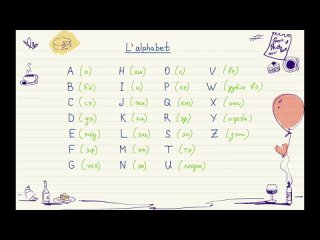 L'alphabet
A (а) H (аш) O (о) V (вэ)
B (бэ) I (и) P (пэ) W (дубль вэ)
C (сэ) J (жи) Q (кю) X (икс)
D (дэ) K (ка) R (эр) Y (игрек)
E L (эль) S (эс) Z (зэт)
F (эф) M (эм) T (тэ)
G (жэ) N (эн) U